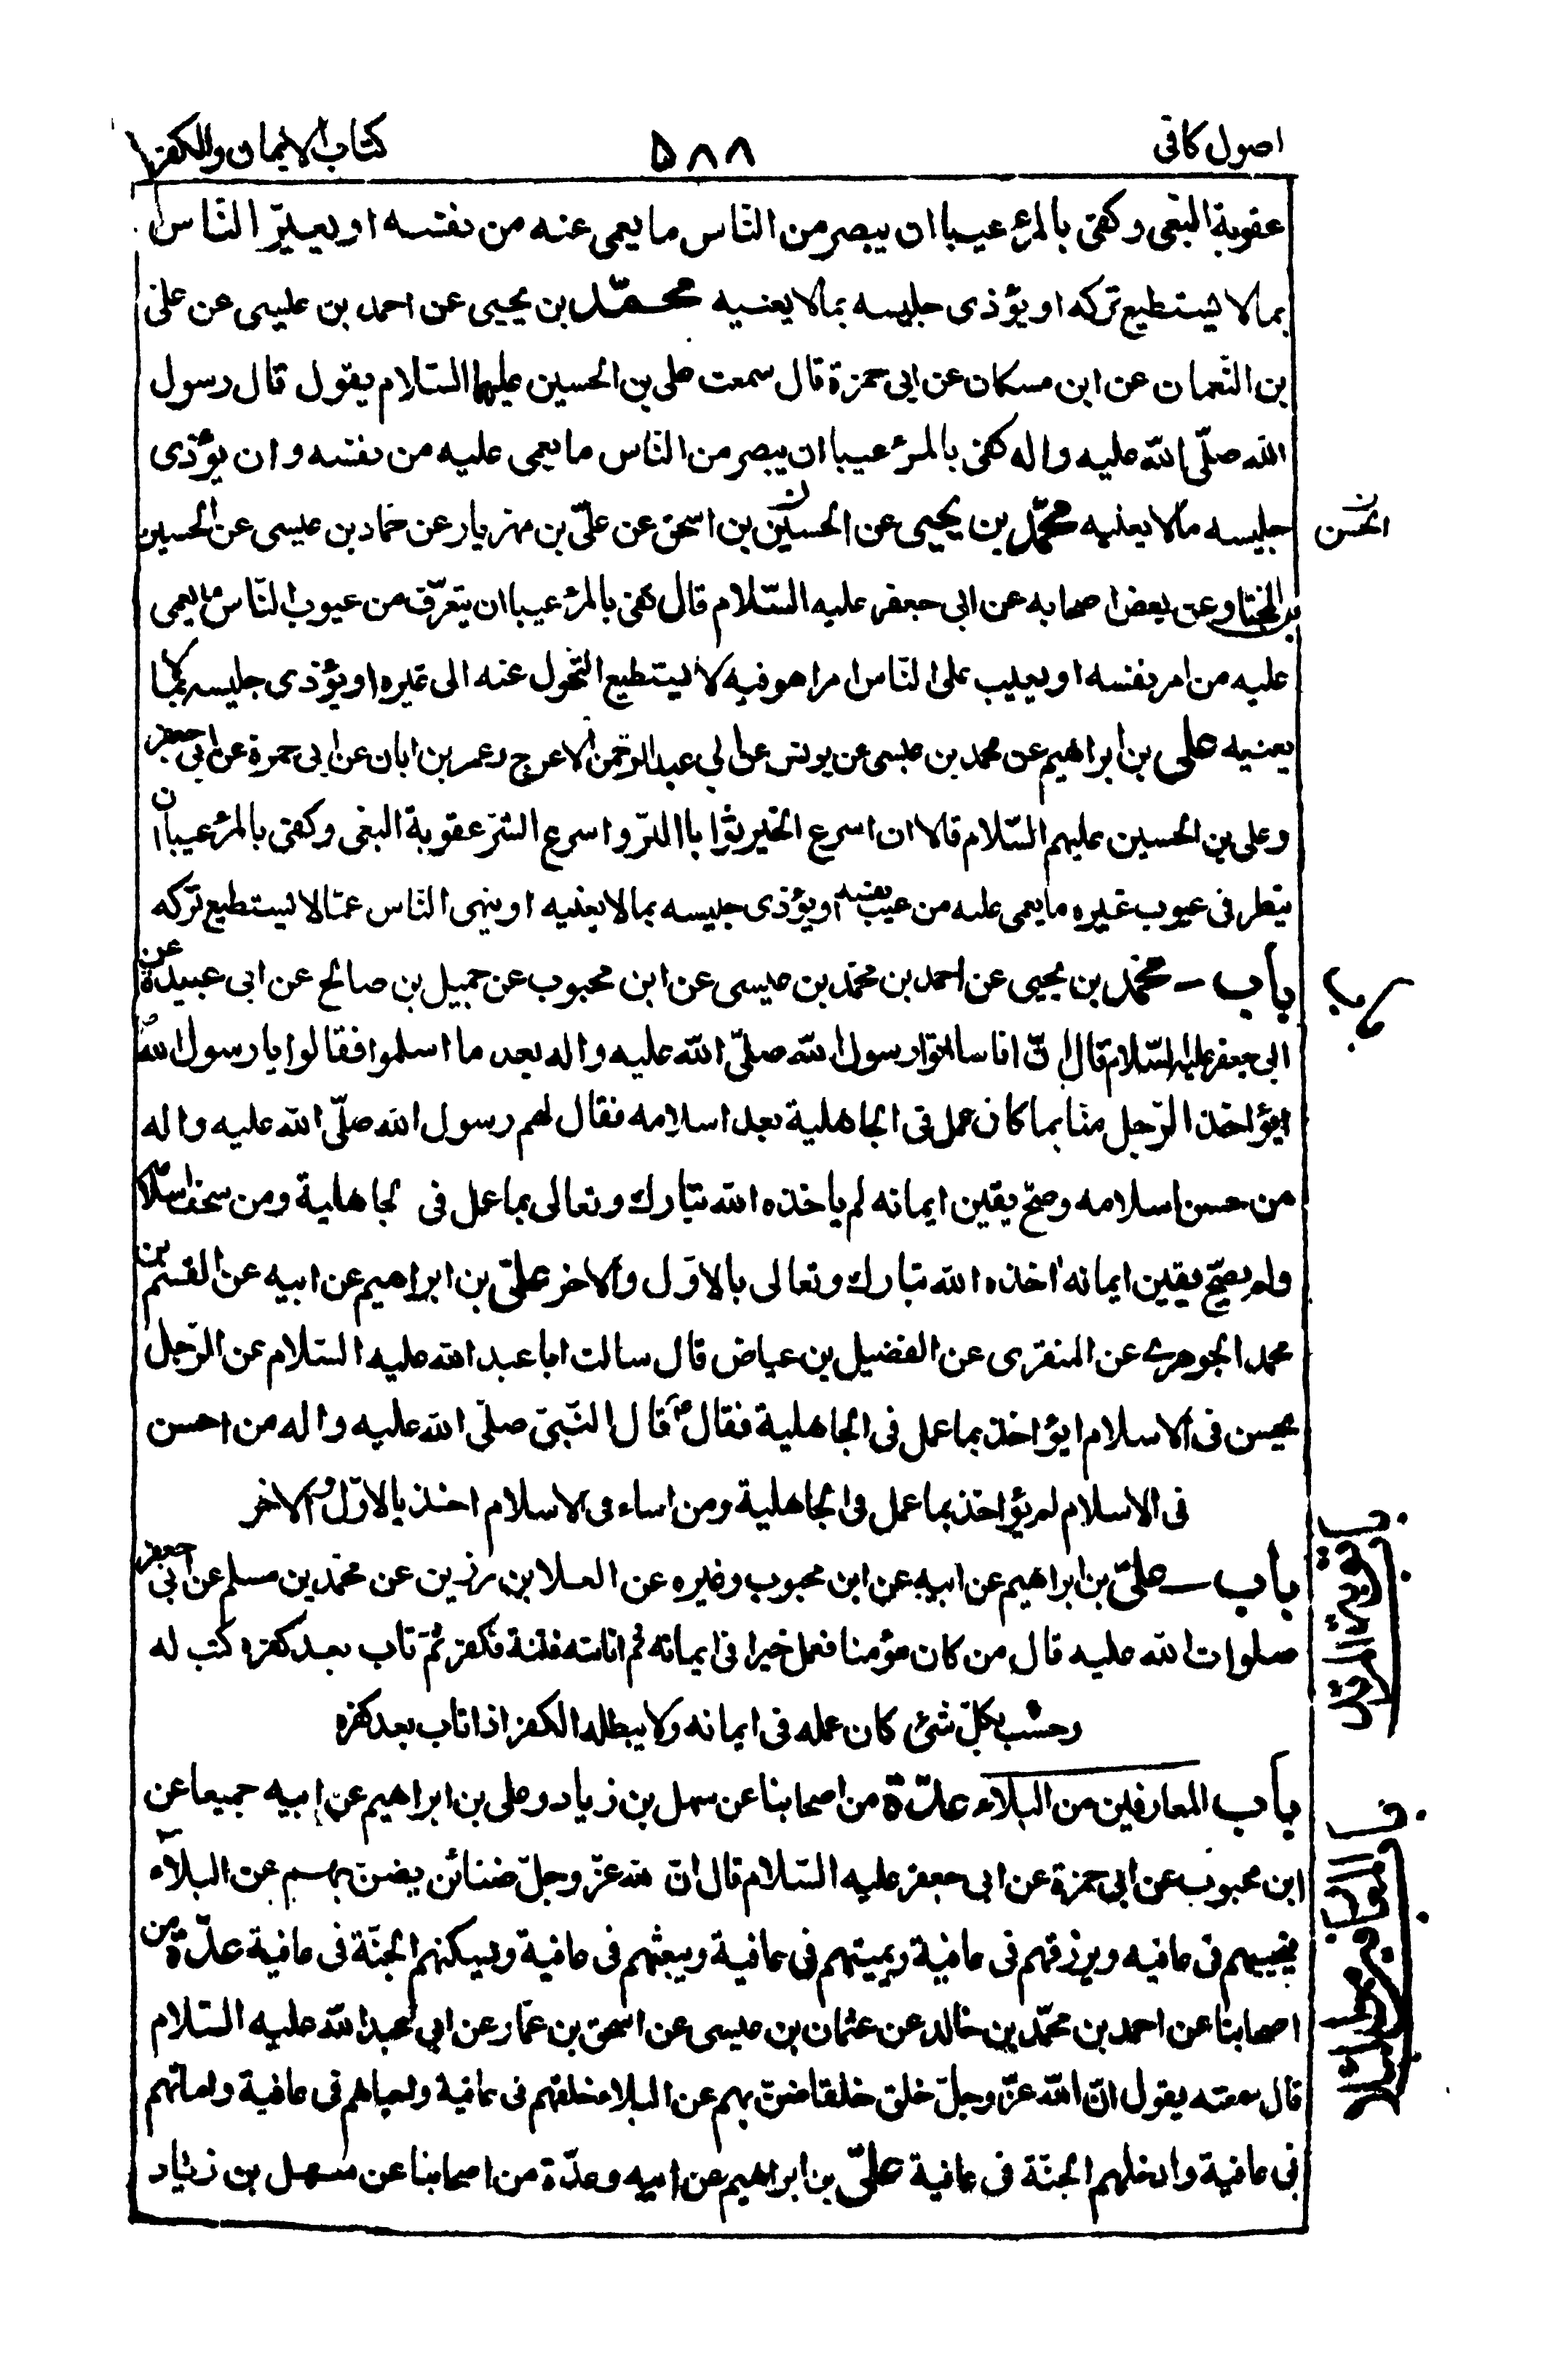 اصول كافى
۵۸۸
كتاب الايمان والكفر
عقوبة البغى وكفى بالمرء عيبا ان يبصر من الناس ما يعمى عنه من نفسه او يعيّر النّاس
بما لا يستطيع تركه او يؤذى جليسه بما لا يعنيه محمّد بن يحيى عن احمد بن عيسى عن على
بن النّعمان عن ابن مسكان عن ابى حمزة قال سمعت على بن الحسين عليهما السّلام يقول قال رسول
الله صلّى الله عليه واله كفى بالمرء عيبا ان يبصر من النّاس ما يعمى عليه من نفسه وان يؤذى
جليسه بما لا يعنيه محمّد بن يحيى عن الحسين بن اسحق عن علىّ بن مهزيار عن حماد بن عيسى عن الحسين
الحسن ن
بن المختار عن بعض اصحابه عن ابى جعفر عليه السّلام قال كفى بالمرء عيبا ان يتعرّف من عيوب النّاس ما يعمى
عليه من امر نفسه او يعيب على النّاس امرا هو فيه لا يستطيع التّحول عنه الى غيره او يؤذى جليسه بما لا
يعنيه على بن ابراهيم عن محمد بن عيسى عن يونس عن ابى عبد الرّحمن الاعرج وعمر بن ابان عن ابى حمزة عن ابى جعفر
وعلى بن الحسين عليهم السّلام قالا ان اسرع الخير ثوابا البرّ واسرع الشرّ عقوبة البغى وكفى بالمرء عيبا ان
ينظر فى عيوب غيره ما يعمى عليه من عيب نفسه او يؤذى جليسه بما لا يعنيه او ينهى النّاس عمّا لا يستطيع تركه
باب محمّد بن يحيى عن احمد بن محمّد بن عيسى عن ابن محبوب عن جميل بن صالح عن ابى عبيدة عن
ابى جعفر عليه السّلام قال انّ اناسا اتوا رسول الله صلّى الله عليه واله بعد ما اسلموا فقالوا يا رسول الله
ايؤاخذ الرّجل منّا بما كان عمل فى الجاهلية بعد اسلامه فقال لهم رسول الله صلّى الله عليه واله
من حسن اسلامه وصحّ يقين ايمانه لم ياخذه الله تبارك وتعالى بما عمل فى لجاهلية ومن سخف اسلامه
ولم يصحّ يقين ايمانه اخذه الله تبارك وتعالى بالاوّل والاخر علىّ بن ابراهيم عن ابيه عن القسم بن
محمد الجوهرى عن المنقرى عن الفضيل بن عياض قال سالت ابا عبد الله عليه السّلام عن الرّجل
يحسن فى الاسلام ايؤاخذ بما عمل فى الجاهلية فقال قال النّبىّ صلّى الله عليه واله من احسن
فى الاسلام لم يؤاخذ بما عمل فى الجاهلية ومن اساء فى الاسلام اخذ بالاوّل والاخر
باب علىّ بن ابراهيم عن ابيه عن ابن محبوب وغيره عن العلا بن رزين عن محمّد بن مسلم عن ابى جعفر
صلوات الله عليه قال من كان مؤمنا فعمل خيرا فى ايمانه ثم اصابته فتنة فكفر ثمّ تاب بعد كفره كتب له
وحسب بكلّ شئ كان عمله فى ايمانه ولا يبطله الكفر اذا تاب بعد كفره
باب المعافين من البلاء عدّة من اصحابنا عن سهل بن زياد وعلى بن ابراهيم عن ابيه جميعا عن
ابن محبوب عن ابى حمزة عن ابى جعفر عليه السّلام قال انّ لله عزّ وجلّ ضنائن يضنّ بهم عن البلاء
فيحييهم فى عافيه ويرزقهم فى عافية ويميتهم فى عافية ويبعثهم فى عافية ويسكنهم الجنّة فى عافية عدّة من
اصحابنا عن احمد بن محمّد بن خالد عن عثمان بن عيسى عن اسحق بن عمّار عن ابى عبد الله عليه السّلام
قال سمعته يقول انّ الله عزّ وجلّ خلق خلقا ضنّ بهم عن البلاء خلقهم فى عافية واحياهم فى عافية واماتهم
فى عافية وادخلهم الجنّة فى عافية علىّ بن ابراهيم عن ابيه وعدّة من اصحابنا عن سهل بن زياد